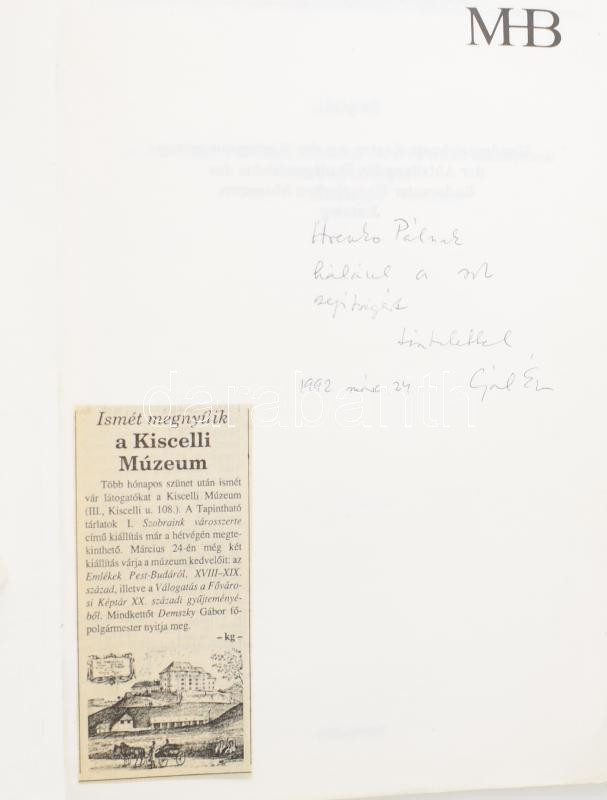 MHB
Hrenko Pálnak
hálául a sok
segítségért
tisztelettel
1992 márc 24. Gál Éva
darabanth
Ismét megnyílik
a Kiscelli
Múzeum
Több hónapos szünet után ismét
vár látogatókat a Kiscelli Múzeum
(III., Kiscelli u. 108.). A Tapintható
tárlatok I. Szobraink városszerte
című kiállítás már a hétvégén megte-
kinthető. Március 24-én még két
kiállítás várja a múzeum kedvelőit: az
Emlékek Pest-Budáról, XVIII–XIX.
század, illetve a Válogatás a Főváro-
si Képtár XX. századi gyűjteményé-
ből. Mindkettőt Demszky Gábor fő-
polgármester nyitja meg.
– kg –